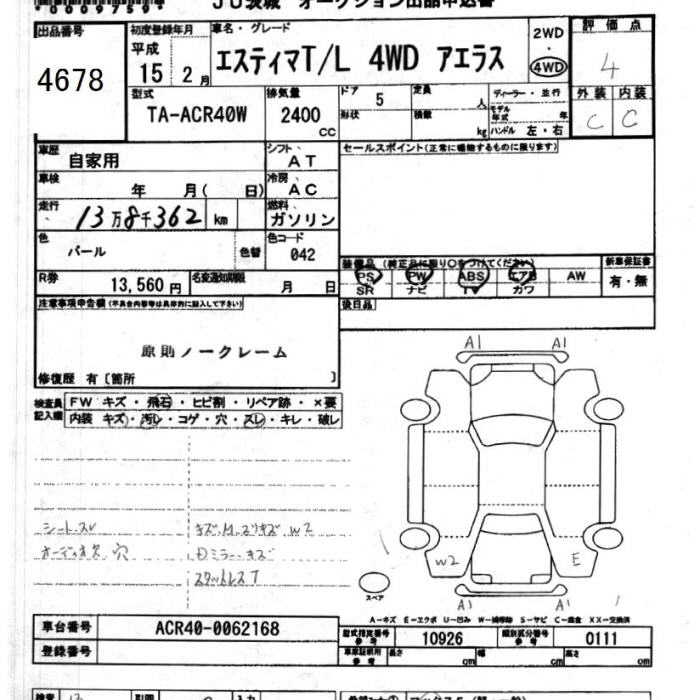 00009759
JU茨城 オークション出品申込書
出品番号 初度登録年月 車名・グレード 2WD 評価点
4678 平成 15 2月 エスティマT/L 4WD アエラス ・ 4WD 4
型式 排気量 ドア 定員 ディーラー・並行 外装 内装
TA-ACR40W 2400 cc 5 人 モデル年式 年 C C
形状 積数 kg ハンドル 左・右
車歴 自家用 シフト AT セールスポイント(正常に機能するものに限ります)
車検 年 月( 日) 冷房 AC
走行 13万8千362 km 燃料 ガソリン
色 パール 色替 色コード 042
装備品 (純正品に限り○をつけてください) 新車保証書
PS PW ABS エアB AW 有・無
SR ナビ TV カワ
R券 13,560円 名変通知期限 月 日
後日品
注意事項申告欄(不具合内容等は具体的に記入して下さい)
原則ノークレーム
修復歴 有〔箇所 〕
A1 A1
検査員 FW キズ・飛石・ヒビ割・リペア跡・×要
記入欄 内装 キズ・汚レ・コゲ・穴・スレ・キレ・破レ
シートスレ キズ.M.スリキズ W2
オーディオ欠 穴 Dミラーキズ
スタットレスT
W2 E
スペア A1 A1
A-キズ E-エクボ U-凹み W-補修跡 S-サビ C-腐食 XX-交換済
車台番号 ACR40-0062168 型式指定番号 参考 10926 類別区分番号 参考 0111
登録番号 車庫証明用 参考 長さ cm 幅 cm 高さ cm